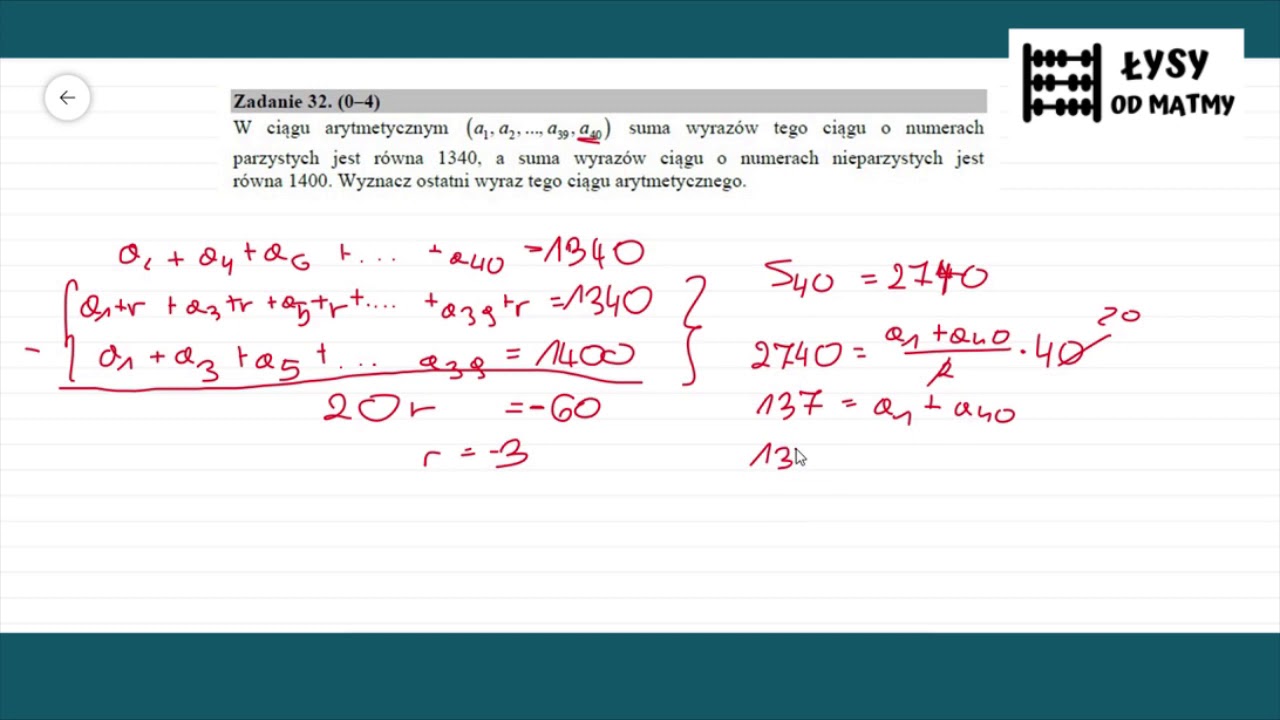 ŁYSY
OD MATMY
Zadanie 32. (0–4)
W ciągu arytmetycznym (a₁, a₂, ..., a₃₉, a₄₀) suma wyrazów tego ciągu o numerach
parzystych jest równa 1340, a suma wyrazów ciągu o numerach nieparzystych jest
równa 1400. Wyznacz ostatni wyraz tego ciągu arytmetycznego.
a₂ + a₄ + a₆ + ... + a₄₀ = 1340
a₁+r + a₃+r + a₅+r + ... + a₃₉+r = 1340
- a₁ + a₃ + a₅ + ... a₃₉ = 1400
20r = -60
r = -3
S₄₀ = 2740
20
2740 = (a₁ + a₄₀)/2 · 40
137 = a₁ + a₄₀
13